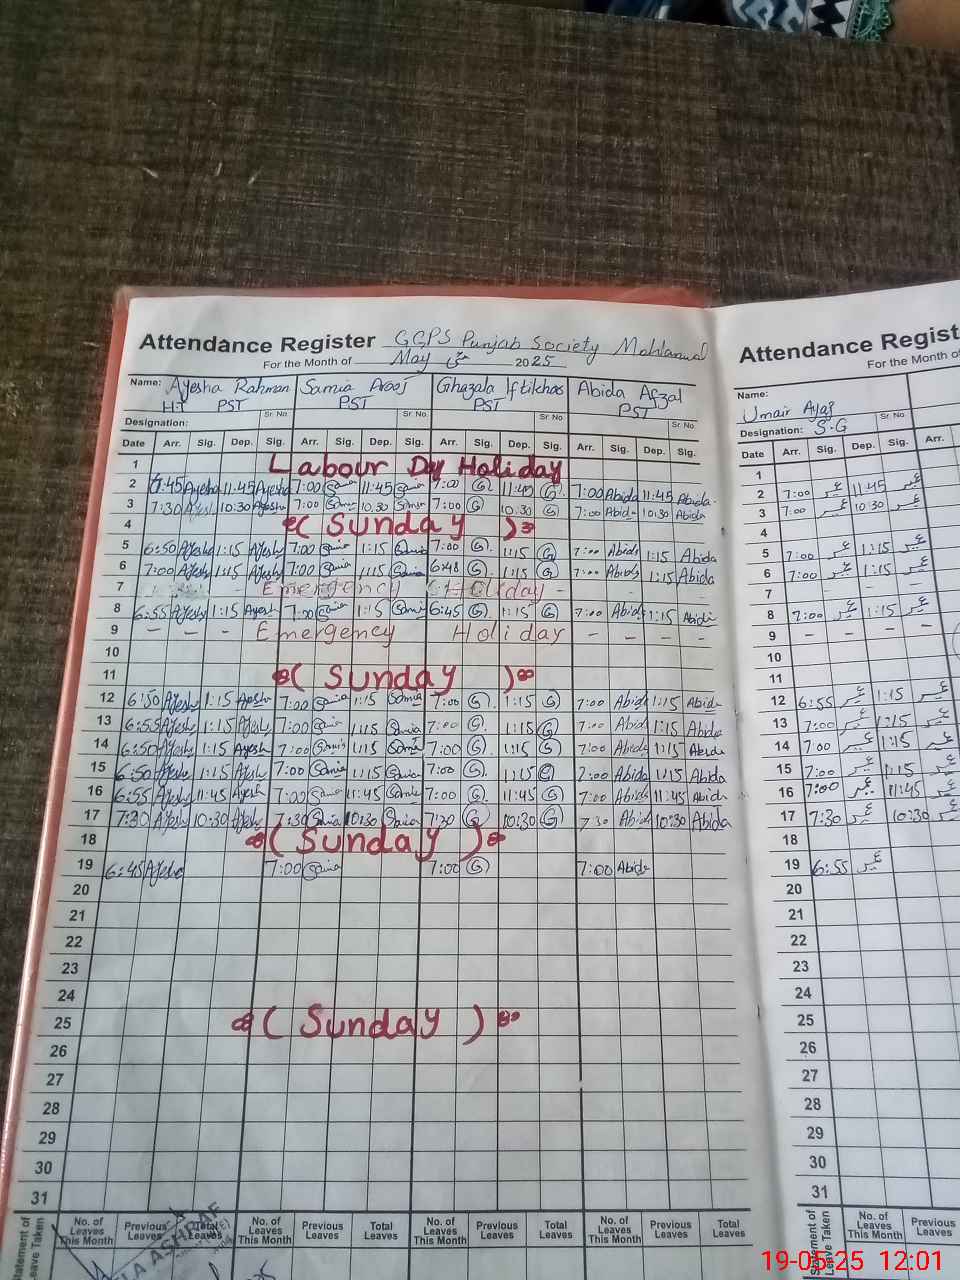 Attendance Register GGPS Punjab Society Mohlanwal
For the Month of May مئی 2025
Name: Ayesha Rahman Samia Arooj Ghazala Iftikhar Abida Afzal
H.T PST PST PST PST
Designation: Sr. No. Sr. No. Sr. No. Sr. No.
Date Arr. Sig. Dep. Sig. Arr. Sig. Dep. Sig. Arr. Sig. Dep. Sig. Arr. Sig. Dep. Sig.
1 Labour Day Holiday
2 6:45 Ayesha 11:45 Ayesha 7:00 Samia 11:45 Samia 7:00 G 11:45 G 7:00 Abida 11:45 Abida
3 7:30 Ayesha 10:30 Ayesha 7:00 Samia 10:30 Samia 7:00 G 10:30 G 7:00 Abida 10:30 Abida
4 ( Sunday )
5 6:50 Ayesha 1:15 Ayesha 7:00 Samia 1:15 Samia 7:00 G 1:15 G 7:00 Abida 1:15 Abida
6 7:00 Ayesha 1:15 Ayesha 7:00 Samia 1:15 Samia 6:48 G 1:15 G 7:00 Abida 1:15 Abida
7 - Emergency Holiday - - - -
8 6:55 Ayesha 1:15 Ayesha 7:00 Samia 1:15 Samia 6:45 G 1:15 G 7:00 Abida 1:15 Abida
9 - - - Emergency Holiday - - - -
10
11 ( Sunday )
12 6:50 Ayesha 1:15 Ayesha 7:00 Samia 1:15 Samia 7:00 G 1:15 G 7:00 Abida 1:15 Abida
13 6:55 Ayesha 1:15 Ayesha 7:00 Samia 1:15 Samia 7:00 G 1:15 G 7:00 Abida 1:15 Abida
14 6:50 Ayesha 1:15 Ayesha 7:00 Samia 1:15 Samia 7:00 G 1:15 G 7:00 Abida 1:15 Abida
15 6:50 Ayesha 1:15 Ayesha 7:00 Samia 1:15 Samia 7:00 G 1:15 G 7:00 Abida 1:15 Abida
16 6:55 Ayesha 11:45 Ayesha 7:00 Samia 11:45 Samia 7:00 G 11:45 G 7:00 Abida 11:45 Abida
17 7:30 Ayesha 10:30 Ayesha 7:30 Samia 10:30 Samia 7:30 G 10:30 G 7:30 Abida 10:30 Abida
18 ( Sunday )
19 6:45 Ayesha 7:00 Samia 7:00 G 7:00 Abida
20
21
22
23
24
25 ( Sunday )
26
27
28
29
30
31
Statement of Leave Taken
No. of Leaves This Month Previous Leaves Total Leaves No. of Leaves This Month Previous Leaves Total Leaves No. of Leaves This Month Previous Leaves Total Leaves No. of Leaves This Month Previous Leaves Total Leaves
ASHRAF
Attendance Regist
For the Month of
Name:
Umair Ayaz
Designation: S.G Sr. No.
Date Arr. Sig. Dep. Sig. Arr.
1
2 7:00 عمیر 11:45 عمیر
3 7:00 عمیر 10:30 عمیر
4
5 7:00 عمیر 1:15 عمیر
6 7:00 عمیر 1:15 عمیر
7 - - - -
8 7:00 عمیر 1:15 عمیر
9 - - - -
10
11
12 6:55 عمیر 1:15 عمیر
13 7:00 عمیر 1:15 عمیر
14 7:00 عمیر 1:15 عمیر
15 7:00 عمیر 1:15 عمیر
16 7:00 عمیر 11:45 عمیر
17 7:30 عمیر 10:30 عمیر
18
19 6:55 عمیر
20
21
22
23
24
25
26
27
28
29
30
31
Statement of Leave Taken
No. of Leaves This Month Previous Leaves
19-05-25 12:01